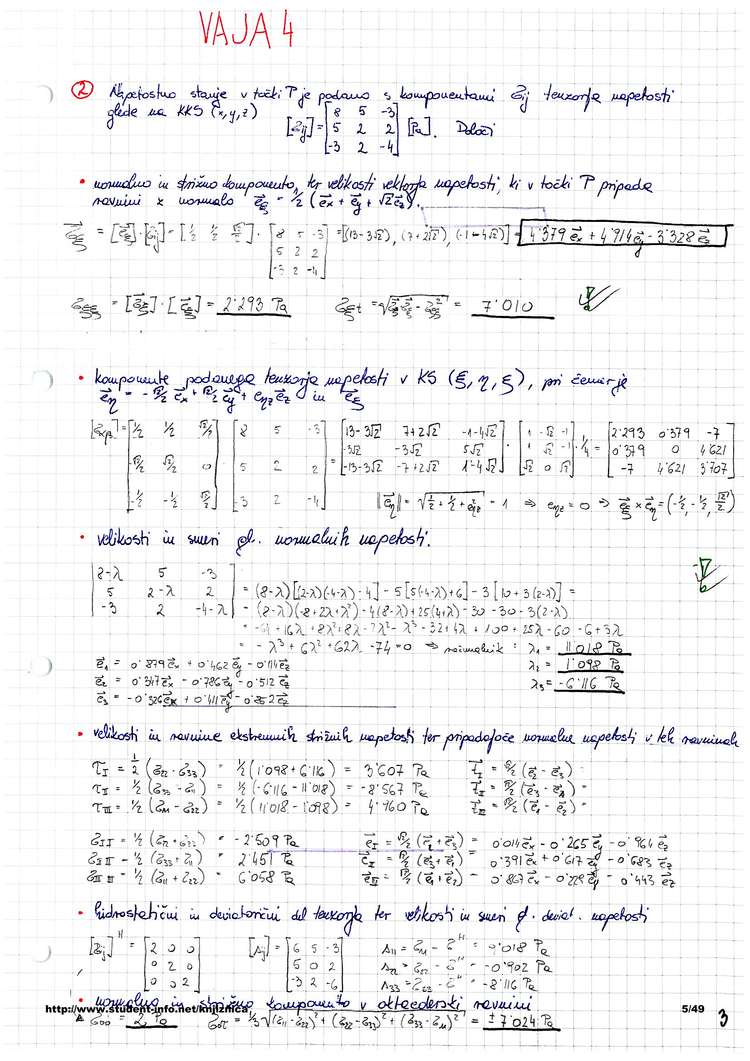 VAJA 4
② Napetostno stanje v točki P je podano s komponentami σij tenzorja napetosti
glede na KKS (x,y,z) [σij] = [8 5 -3; 5 2 2; -3 2 -4] [Pa]. Določi
• normalno in strižno komponento, ter velikosti vektorja napetosti, ki v točki P pripada
ravnini z normalo e⃗ξ = 1/2 (e⃗x + e⃗y + √2 e⃗z).
σ⃗ξ = [e⃗ξ]·[σij] = [1/2 1/2 √2/2] · [8 5 -3; 5 2 2; -3 2 -4] = 1/2[(13-3√2), (7+2√2), (-1-4√2)] = 4'379 e⃗x + 4'914 e⃗y - 3'328 e⃗z
σξξ = [σ⃗ξ]·[e⃗ξ] = 2'293 Pa σξt = √(σ⃗ξ·σ⃗ξ - σ²ξξ) = 7'010
• komponente podanega tenzorja napetosti v KS (ξ, η, ξ), pri čemer je
e⃗η = -√2/2 e⃗x + √2/2 e⃗y + eηz e⃗z in e⃗ξ
[σαβ] = [1/2 1/2 √2/2; -√2/2 √2/2 0; -1/2 -1/2 √2/2] [8 5 -3; 5 2 2; -3 2 -4] = [13-3√2 7+2√2 -1-4√2; -3√2 -3√2 5√2; -13-3√2 -7+2√2 1-4√2] · [1 -√2 -1; 1 √2 -1; √2 0 √2] · 1/4 = [2'293 0'379 -7; 0'379 0 4'621; -7 4'621 3'707]
||e⃗η|| = √(1/2 + 1/2 + e²ηz) = 1 ⇒ eηz = 0 ⇒ e⃗ξ × e⃗η = (-1/2, -1/2, √2/2)
• velikosti in smeri gl. normalnih napetosti.
|8-λ 5 -3; 5 2-λ 2; -3 2 -4-λ| = (8-λ)[(2-λ)(-4-λ) - 4] - 5[5(-4-λ)+6] - 3[10+3(2-λ)] =
= (8-λ)(-8+2λ+λ²) - 4(8-λ) + 25(4+λ) - 30 - 30 - 3(2-λ)
= -64+16λ+8λ²+8λ-2λ²-λ³-32+4λ+100+25λ-60-6+3λ
= -λ³ + 6λ² + 62λ - 74 = 0 ⇒ računalnik: λ₁ = 11'018 Pa
e⃗1 = 0'879 e⃗x + 0'462 e⃗y - 0'114 e⃗z λ₂ = 1'098 Pa
e⃗2 = 0'347 e⃗x - 0'786 e⃗y - 0'512 e⃗z
e⃗3 = -0'326 e⃗x + 0'411 e⃗y - 0'852 e⃗z λ₃ = -6'116 Pa
• velikosti in ravnine ekstremnih strižnih napetosti ter pripadajoče normalne napetosti v teh ravninah
τI = 1/2 (σ22 - σ33) = 1/2 (1'098 + 6'116) = 3'607 Pa t⃗I = √2/2 (e⃗2 - e⃗3) =
τII = 1/2 (σ33 - σ1) = 1/2 (-6'116 - 11'018) = -8'567 Pa t⃗II = √2/2 (e⃗3 - e⃗1) =
τIII = 1/2 (σ11 - σ22) = 1/2 (11'018 - 1'098) = 4'960 Pa t⃗III = √2/2 (e⃗1 - e⃗2) =
σI I = 1/2 (σ22 + σ33) = -2'509 Pa e⃗I = √2/2 (e⃗2 + e⃗3) = 0'014 e⃗x - 0'265 e⃗y - 0'964 e⃗z
σII II = 1/2 (σ33 + σ1) = 2'451 Pa e⃗I = √2/2 (e⃗3 + e⃗1) = 0'391 e⃗x + 0'617 e⃗y - 0'683 e⃗z
σIII III = 1/2 (σ11 + σ22) = 6'058 Pa e⃗III = √2/2 (e⃗1 + e⃗2) = 0'867 e⃗x - 0'229 e⃗y - 0'443 e⃗z
• hidrostatični in deviatorični del tenzorja ter velikosti in smeri gl. deviat. napetosti
[σij]ᴴ = [2 0 0; 0 2 0; 0 0 2] [sij] = [6 5 -3; 5 0 2; -3 2 -6] s11 = σ11 - σᴴ = 9'018 Pa
s22 = σ22 - σᴴ = -0'902 Pa
s33 = σ22 - σᴴ = -8'116 Pa
• normalno in strižno komponento v oktaederski ravnini
http://www.student-info.net/knjiznica 5/49
σoo = 2 Pa σoτ = 1/3 √((σ11-σ22)² + (σ22-σ33)² + (σ33-σ11)²) = ±7'024 Pa
3